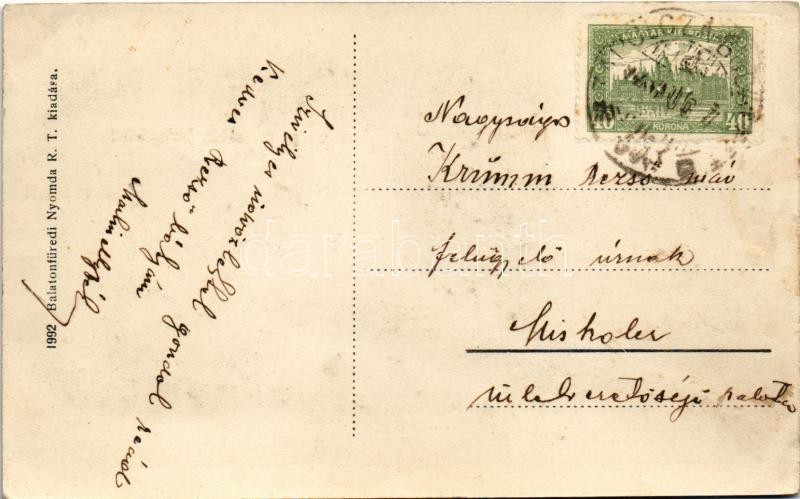 1992 Balatonfüredi Nyomda R. T. kiadása.
Szívélyes üdvözlettel gondol reád
Kedves Rezső bátyám
MAGYAR KIR. POSTA
40 KORONA 40
Nagyságos
Krumm Rezső máv
felügyelő úrnak
Miskolcz
üzletvezetőségi palota
darabanth